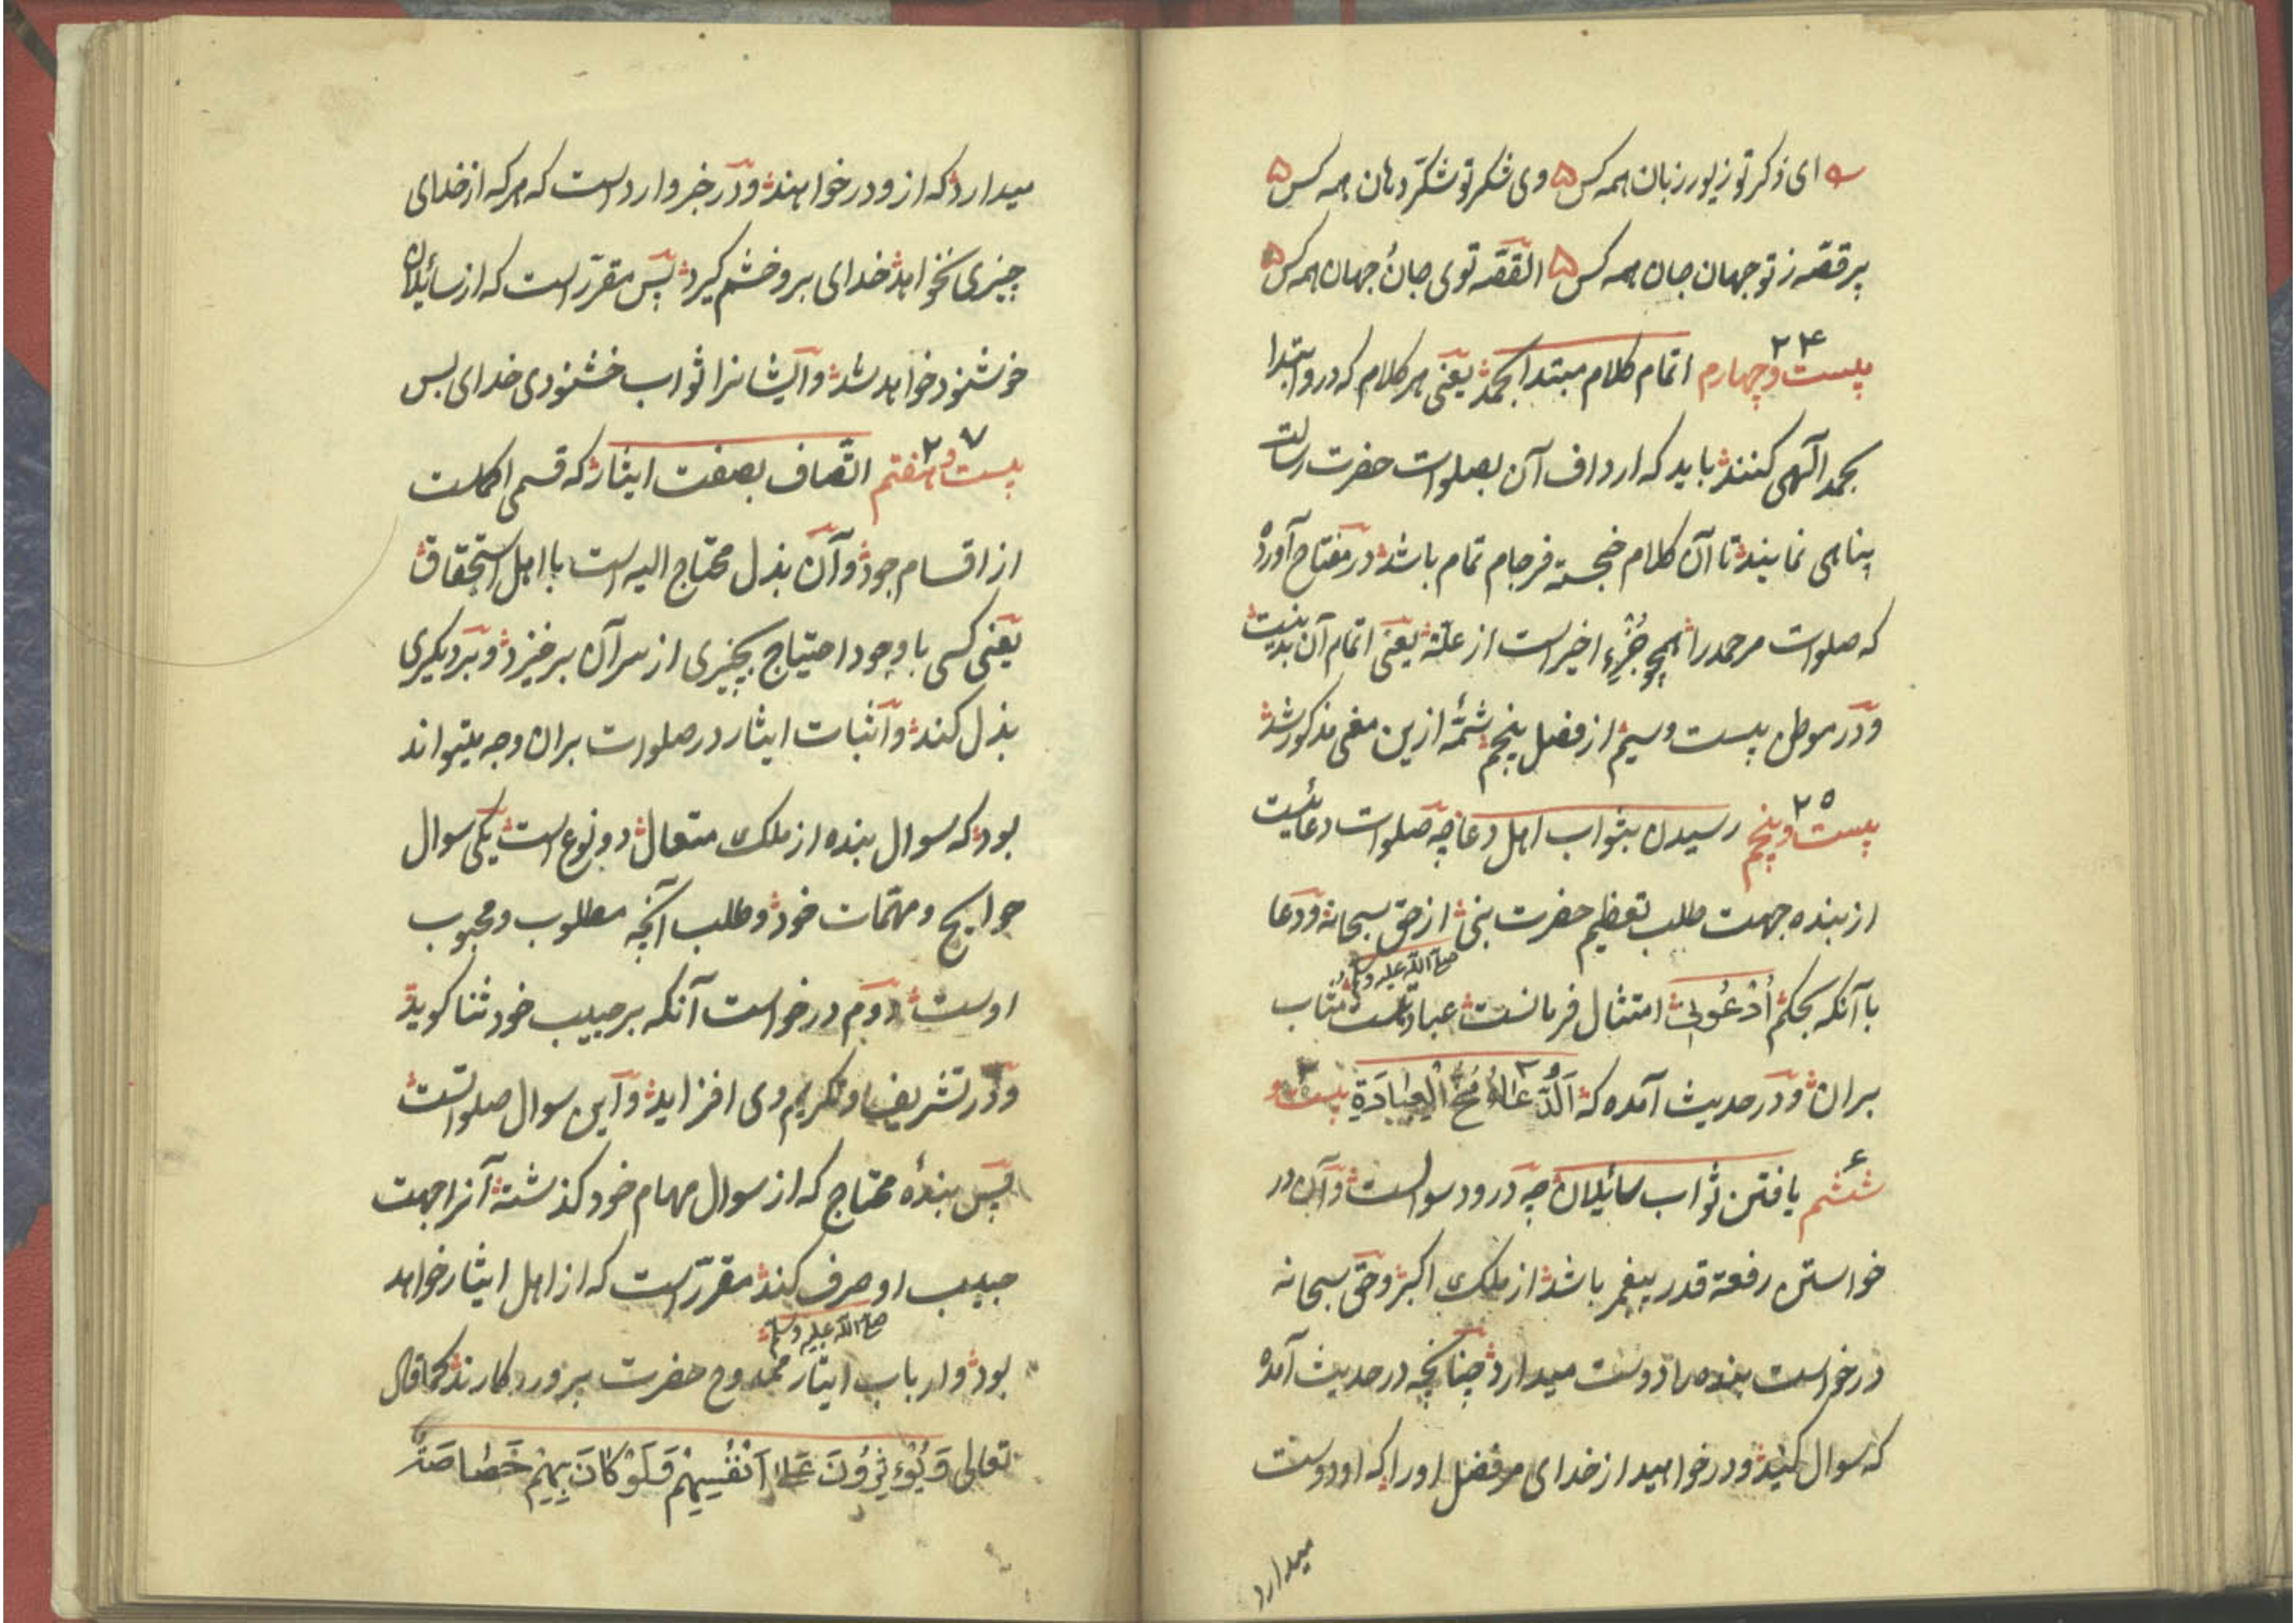 ای ذکر تو زیور زبان همه کس ۵ وی شکر تو شکّر دهان همه کس ۵
پر قصّه ز تو جهان جان همه کس ۵ القصّه توی جان جهان همه کس ۵
۲۴
بیست و چهارم اتمام کلام مبتدا بحمد یعنی هر کلام که درو ابتدا
بحمد الٓهی کنند باید که ارداف آن بصلوات حضرت رسالت
پناهی نمایند تا آن کلام خجسته فرجام تمام باشد در مفتاح آورده
که صلوات مر حمد را همچو جُزْءِ اخیرست از علّة یعنی اتمام آن بدینست
و در موطن بیست و سیم از فصل پنجم شمّهٔ ازین معنی مذکور شد
۲۵
بیست و پنجم رسیدن بثواب اهل دعا چه صلوات دعائیست
از بنده جهت طلب تعظیم حضرت نبی از حق سبحانه و دعا
صلی الله علیه وسلم
با آنکه بحکم اُدْعُونِی امتثال فرمانست عبادتست مثاب
بران و در حدیث آمده که اَلدُّعَاءُ مُخُّ الْعِبَادَةِ بیست و
۲۶
ششم یافتن ثواب سائیلان چه درود سوالست و آن در
خواستن رفعة قدر پیغمبر باشد از ملک اکبر و حق سبحانه
درخواست بنده را دوست میدارد چنانچه در حدیث آمده
که سوال کنید و درخواهید از خدای مر فضل او را که او دوست
میدارد
میدارد که ازو درخواهند و در خبر وارد است که هر که از خدای
چیزی نخواهد خدای برو خشم گیرد پس مقرّر است که از سائیلان
خوشنود خواهد شد و ایشانرا ثواب خشنودی خدای بس
۲۷
بیست و هفتم اتّصاف بصفت ایثار که قسمی اکملست
از اقسام جود و آن بذل محتاج الیه است با اهل استحقاق
یعنی کسی با وجود احتیاج بچیزی از سر آن برخیزد و بر دیگری
بذل کند و اثبات ایثار در صلوات بران وجه میتواند
بود که سوال بنده از ملک متعال دو نوع است یکی سوال
حوایج و مهمّات خود و طلب آنچه مطلوب و محبوب
اوست دوم درخواست آنکه بر حبیب خود ثنا گوید
و در تشریف و تکریم وی افزاید و این سوال صلواتست
پس بندهٔ محتاج که از سوال مهام خود گذشته آنرا جهت
حبیب او صرف کند مقرّر است که از اهل ایثار خواهد
صلی الله علیه وسلم
بود و ارباب ایثار ممدوح حضرت پروردگارند کما قال
تعالی وَیُؤْثِرُونَ عَلیٰ اَنْفُسِهِمْ وَلَوْ کَانَ بِهِمْ خَصَاصَةٌ